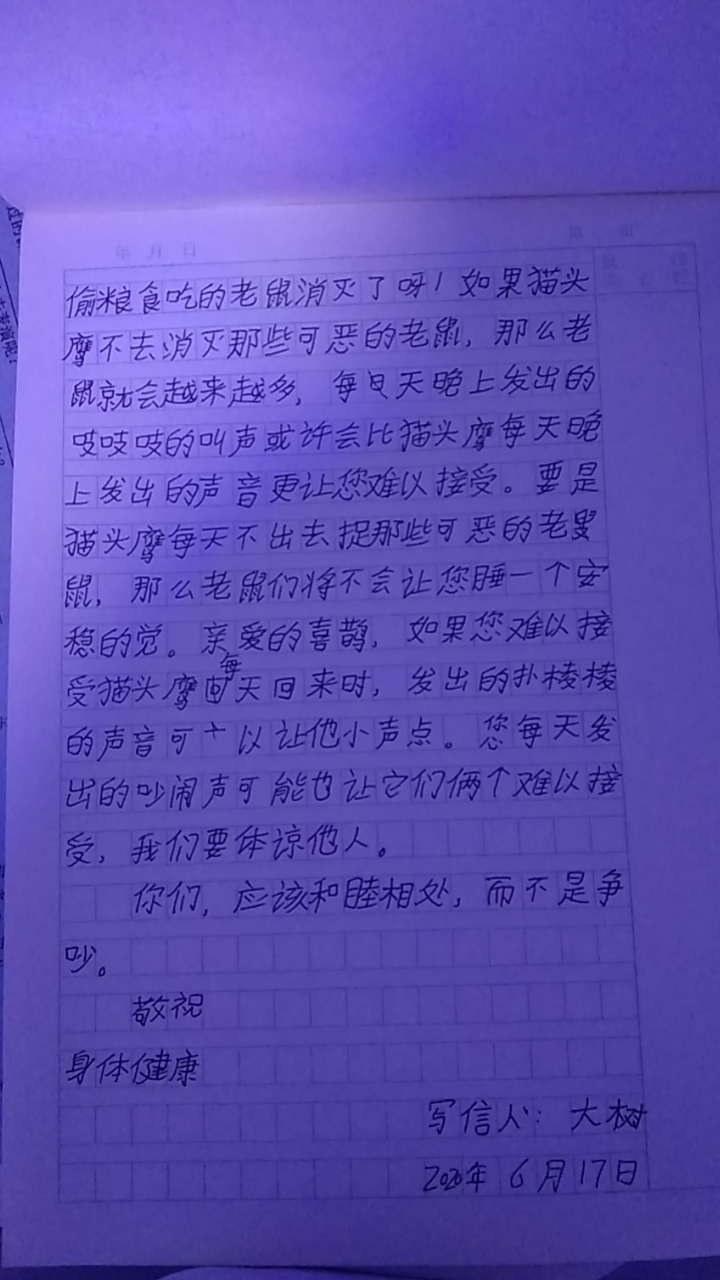 年 月 日
第 页
偷粮食吃的老鼠消灭了呀！如果猫头
摩不去消灭那些可恶的老鼠，那么老
鼠就会越来越多，每天晚上发出的
吱吱吱的叫声或许会比猫头摩每天晚
上发出的声音更让您难以接受。要是
猫头摩每天不出去捉那些可恶的老
鼠，那么老鼠们将不会让您睡一个安
稳的觉。亲爱的喜鹊，如果您难以接
受猫头摩每天回来时，发出的扑棱棱
的声音可以让他小声点。您每天发
出的吵闹声可能也让它们俩个难以接
受，我们要体谅他人。
你们，应该和睦相处，而不是争
吵。
敬祝
身体健康
写信人：大树
2020年 6月17日